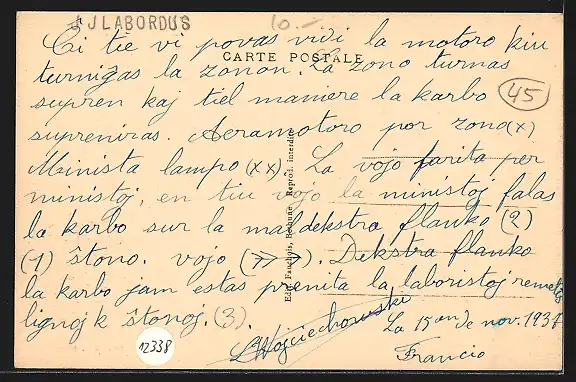 J LABORDUS
10.-
Ci tie vi povas vidi la motoro kiu
CARTE POSTALE
turniĝas la zonon. La zono turnas
supren kaj tiel maniere la karbo
45
supreniras. Aeramotoro por zono (x)
Minista lampo (xx). La vojo farita per
ministoj, en tiu vojo la ministoj falas
la karbo sur la maldekstra flanko (2)
(1) ŝtono. vojo (>>>). Dekstra flanko
la karbo jam estas prenita la laboristoj remetas
lignoj k ŝtonoj. (3).
LWojciechowski
La 15an de nov. 1937
Francio
12338
Edit. Fauchois, Béthune Reprod. interdite